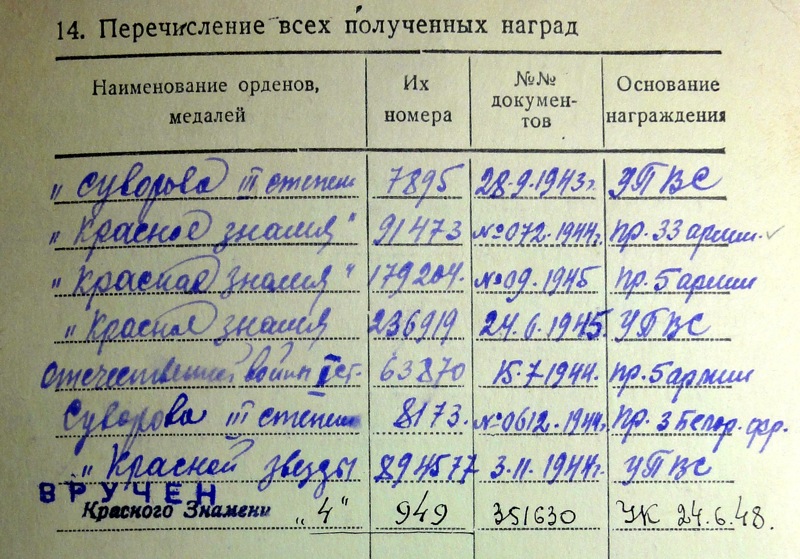 14. Перечисление всех полученных наград
Наименование орденов, медалей Их номера №№ докумен-тов Основание награждения
„ Суворова III степени 7895 28.9.1943г. УПВС
„ Красное знамя" 91473 №072.1944г. пр. 33 армии.
„ Красное знамя" 179204. №09.1945 пр. 5 армии
„ Красное знамя 236919 24.6.1945. УПВС
Отечественной войны I ст. 63870 15.7.1944. пр. 5 армии
Суворова III степени 8173. №0612.1944г. пр. 3 Белор. фр.
„ Красной звезды 894577 3.11.1944г. УПВС
ВРУЧЕН
Красного Знамени „4" 949 351630 УК 24.6.48.